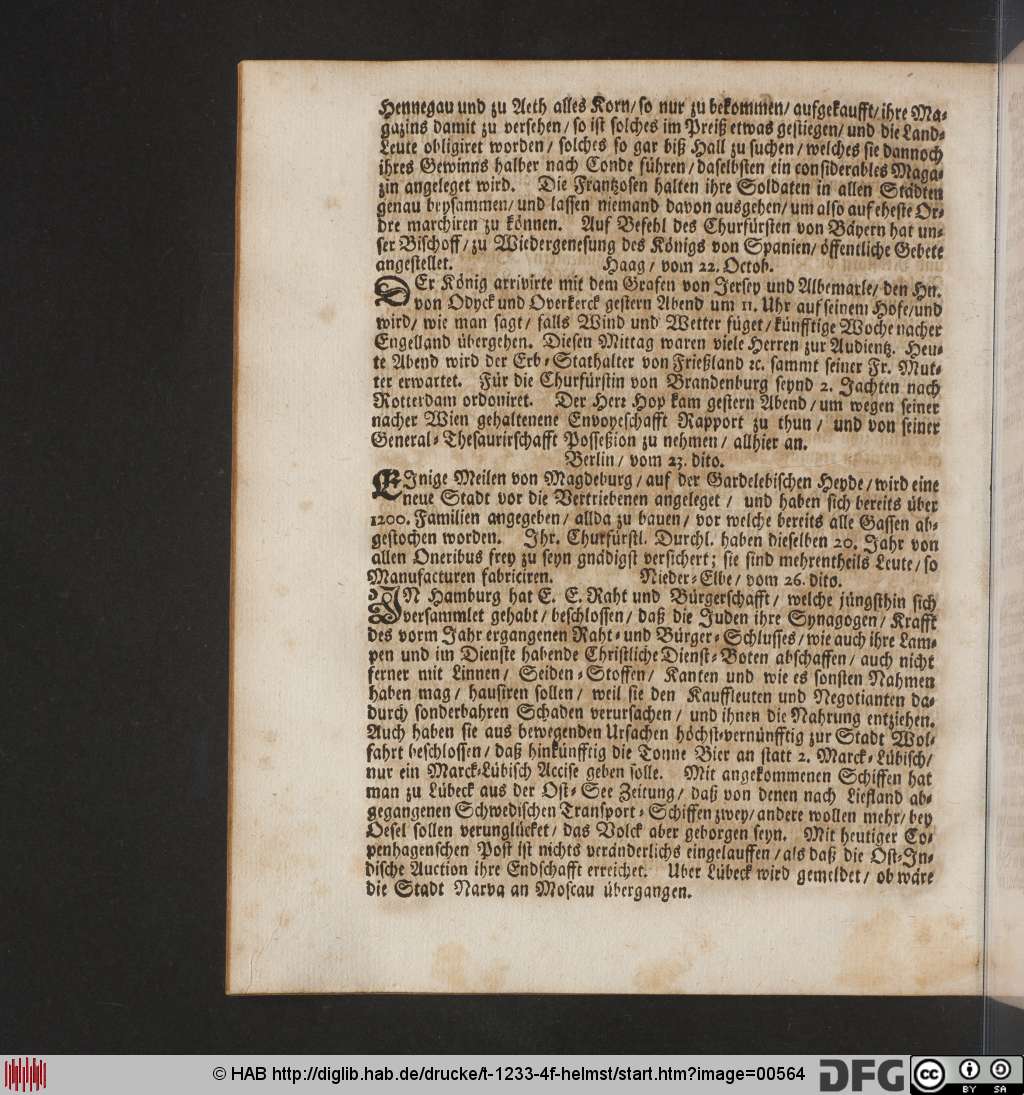 Hennegau und zu Aeth alles Korn/ so nur zu bekommen/ aufgekaufft/ ihre Ma-
gazins damit zu versehen/ so ist solches im Preiß etwas gestiegen/ und die Land-
Leute obligiret worden/ solches so gar biß Hall zu suchen/ welches sie dannoch
ihres Gewinns halber nach Conde führen/ daselbsten ein considerables Maga-
zin angeleget wird. Die Frantzosen halten ihre Soldaten in allen Städten
genau beysammen/ und lassen niemand davon ausgehen/ um also auf eheste Or-
dre marchiren zu können. Auf Befehl des Churfürsten von Bäyern hat un-
ser Bischoff/ zu Wiedergenesung des Königs von Spanien/ öffentliche Gebete
angestellet. Haag/ vom 22. Octob.
DEr König arrivirte mit dem Grafen von Jersey und Albemarle/ den Hn.
von Odyck und Overkerck gestern Abend um 11. Uhr auf seinem Hofe/ und
wird/ wie man sagt/ falls Wind und Wetter füget/ künfftige Woche nacher
Engelland übergehen. Diesen Mittag waren viele Herren zur Audientz. Heu-
te Abend wird der Erb-Stathalter von Frießland ꝛc. sammt seiner Fr. Mut-
ter erwartet. Für die Churfürstin von Brandenburg seynd 2. Jachten nach
Rotterdam ordoniret. Der Herr Hop kam gestern Abend/ um wegen seiner
nacher Wien gehaltenene Envoyeschafft Rapport zu thun/ und von seiner
General-Thesaurirschafft Posseßion zu nehmen/ allhier an.
Berlin/ vom 23. dito.
EInige Meilen von Magdeburg/ auf der Gardelebischen Heyde/ wird eine
neue Stadt vor die Vertriebenen angeleget/ und haben sich bereits über
1200. Familien angegeben/ allda zu bauen/ vor welche bereits alle Gassen ab-
gestochen worden. Ihr. Churfürstl. Durchl. haben dieselben 20. Jahr von
allen Oneribus frey zu seyn gnädigst versichert; sie sind mehrentheils Leute/ so
Manufacturen fabriciren. Nieder-Elbe/ vom 26. dito.
IN Hamburg hat E. E. Raht und Bürgerschafft/ welche jüngsthin sich
versammlet gehabt/ beschlossen/ daß die Juden ihre Synagogen/ Krafft
des vorm Jahr ergangenen Raht- und Bürger-Schlusses/ wie auch ihre Lam-
pen und im Dienste habende Christliche Dienst-Boten abschaffen/ auch nicht
ferner mit Linnen/ Seiden-Stoffen/ Kanten und wie es sonsten Nahmen
haben mag/ hausiren sollen/ weil sie den Kauffleuten und Negotianten da-
durch sonderbahren Schaden verursachen/ und ihnen die Nahrung entziehen.
Auch haben sie aus bewegenden Ursachen höchst-vernünfftig zur Stadt Wol-
fahrt beschlossen/ daß hinkünfftig die Tonne Bier an statt 2. Marck-Lübisch/
nur ein Marck-Lübisch Accise geben solle. Mit angekommenen Schiffen hat
man zu Lübeck aus der Ost-See Zeitung/ daß von denen nach Liefland ab-
gegangenen Schwedischen Transport-Schiffen zwey/ andere wollen mehr/ bey
Oesel sollen verunglücket/ das Volck aber geborgen seyn. Mit heutiger Co-
penhagenschen Post ist nichts veränderlichs eingelauffen/ als daß die Ost-In-
dische Auction ihre Endschafft erreichet. Uber Lübeck wird gemeldet/ ob wäre
die Stadt Narva an Moscau übergangen.
© HAB http://diglib.hab.de/drucke/t-1233-4f-helmst/start.htm?image=00564
DFG
cc
BY SA